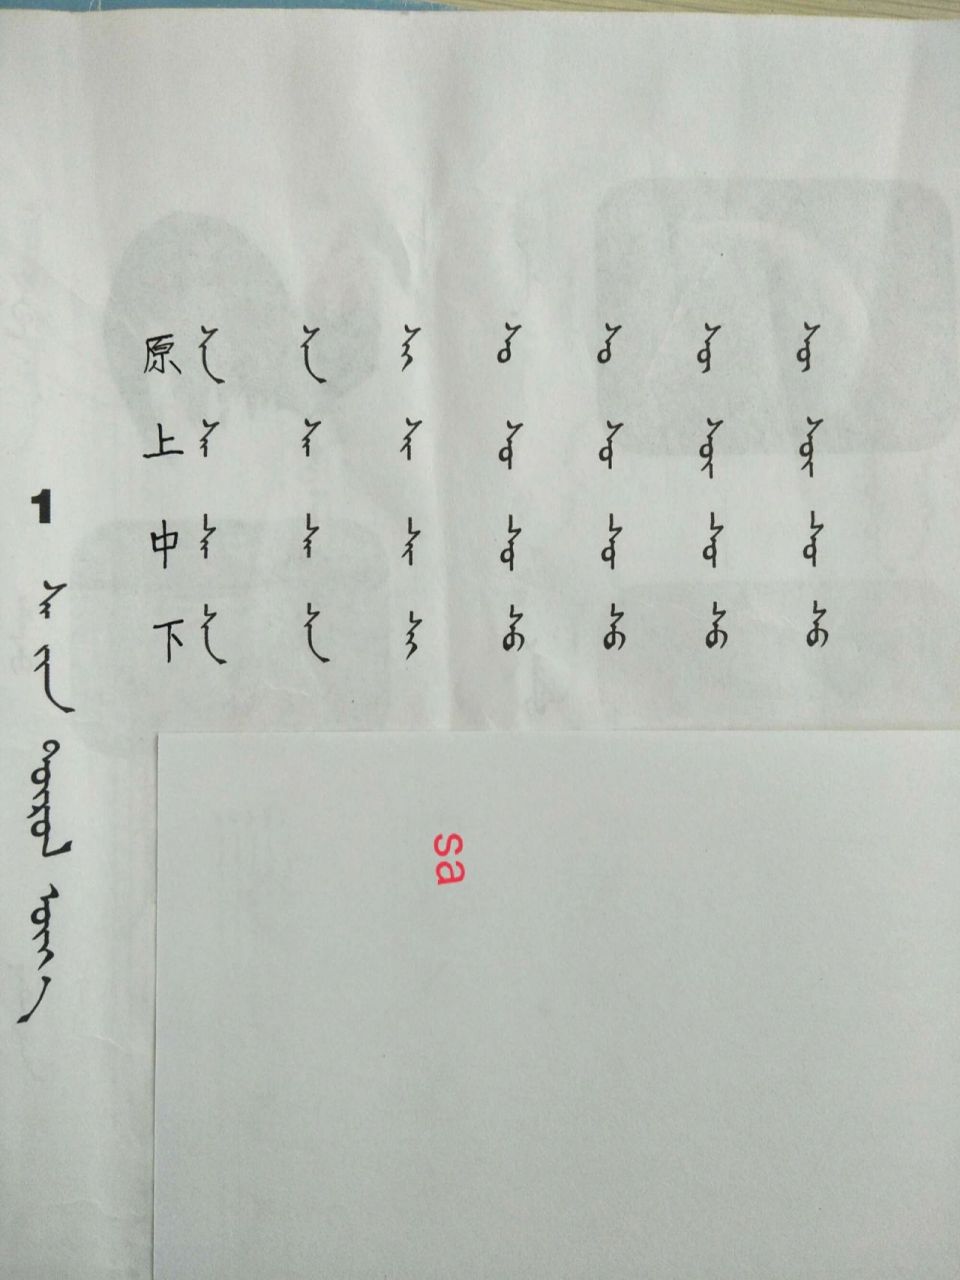 原 ᠰᠠ ᠰᠡ ᠰᠢ ᠰᠣ ᠰᠤ ᠰᠥ ᠰᠦ
上 ᠰᠠ‍ ᠰᠡ‍ ᠰᠢ‍ ᠰᠣ‍ ᠰᠤ‍ ᠰᠥ‍ ᠰᠦ‍
中 ‍ᠰᠠ‍ ‍ᠰᠡ‍ ‍ᠰᠢ‍ ‍ᠰᠣ‍ ‍ᠰᠤ‍ ‍ᠰᠥ‍ ‍ᠰᠦ‍
下 ‍ᠰᠠ ‍ᠰᠡ ‍ᠰᠢ ‍ᠰᠣ ‍ᠰᠤ ‍ᠰᠥ ‍ᠰᠦ
1
sa